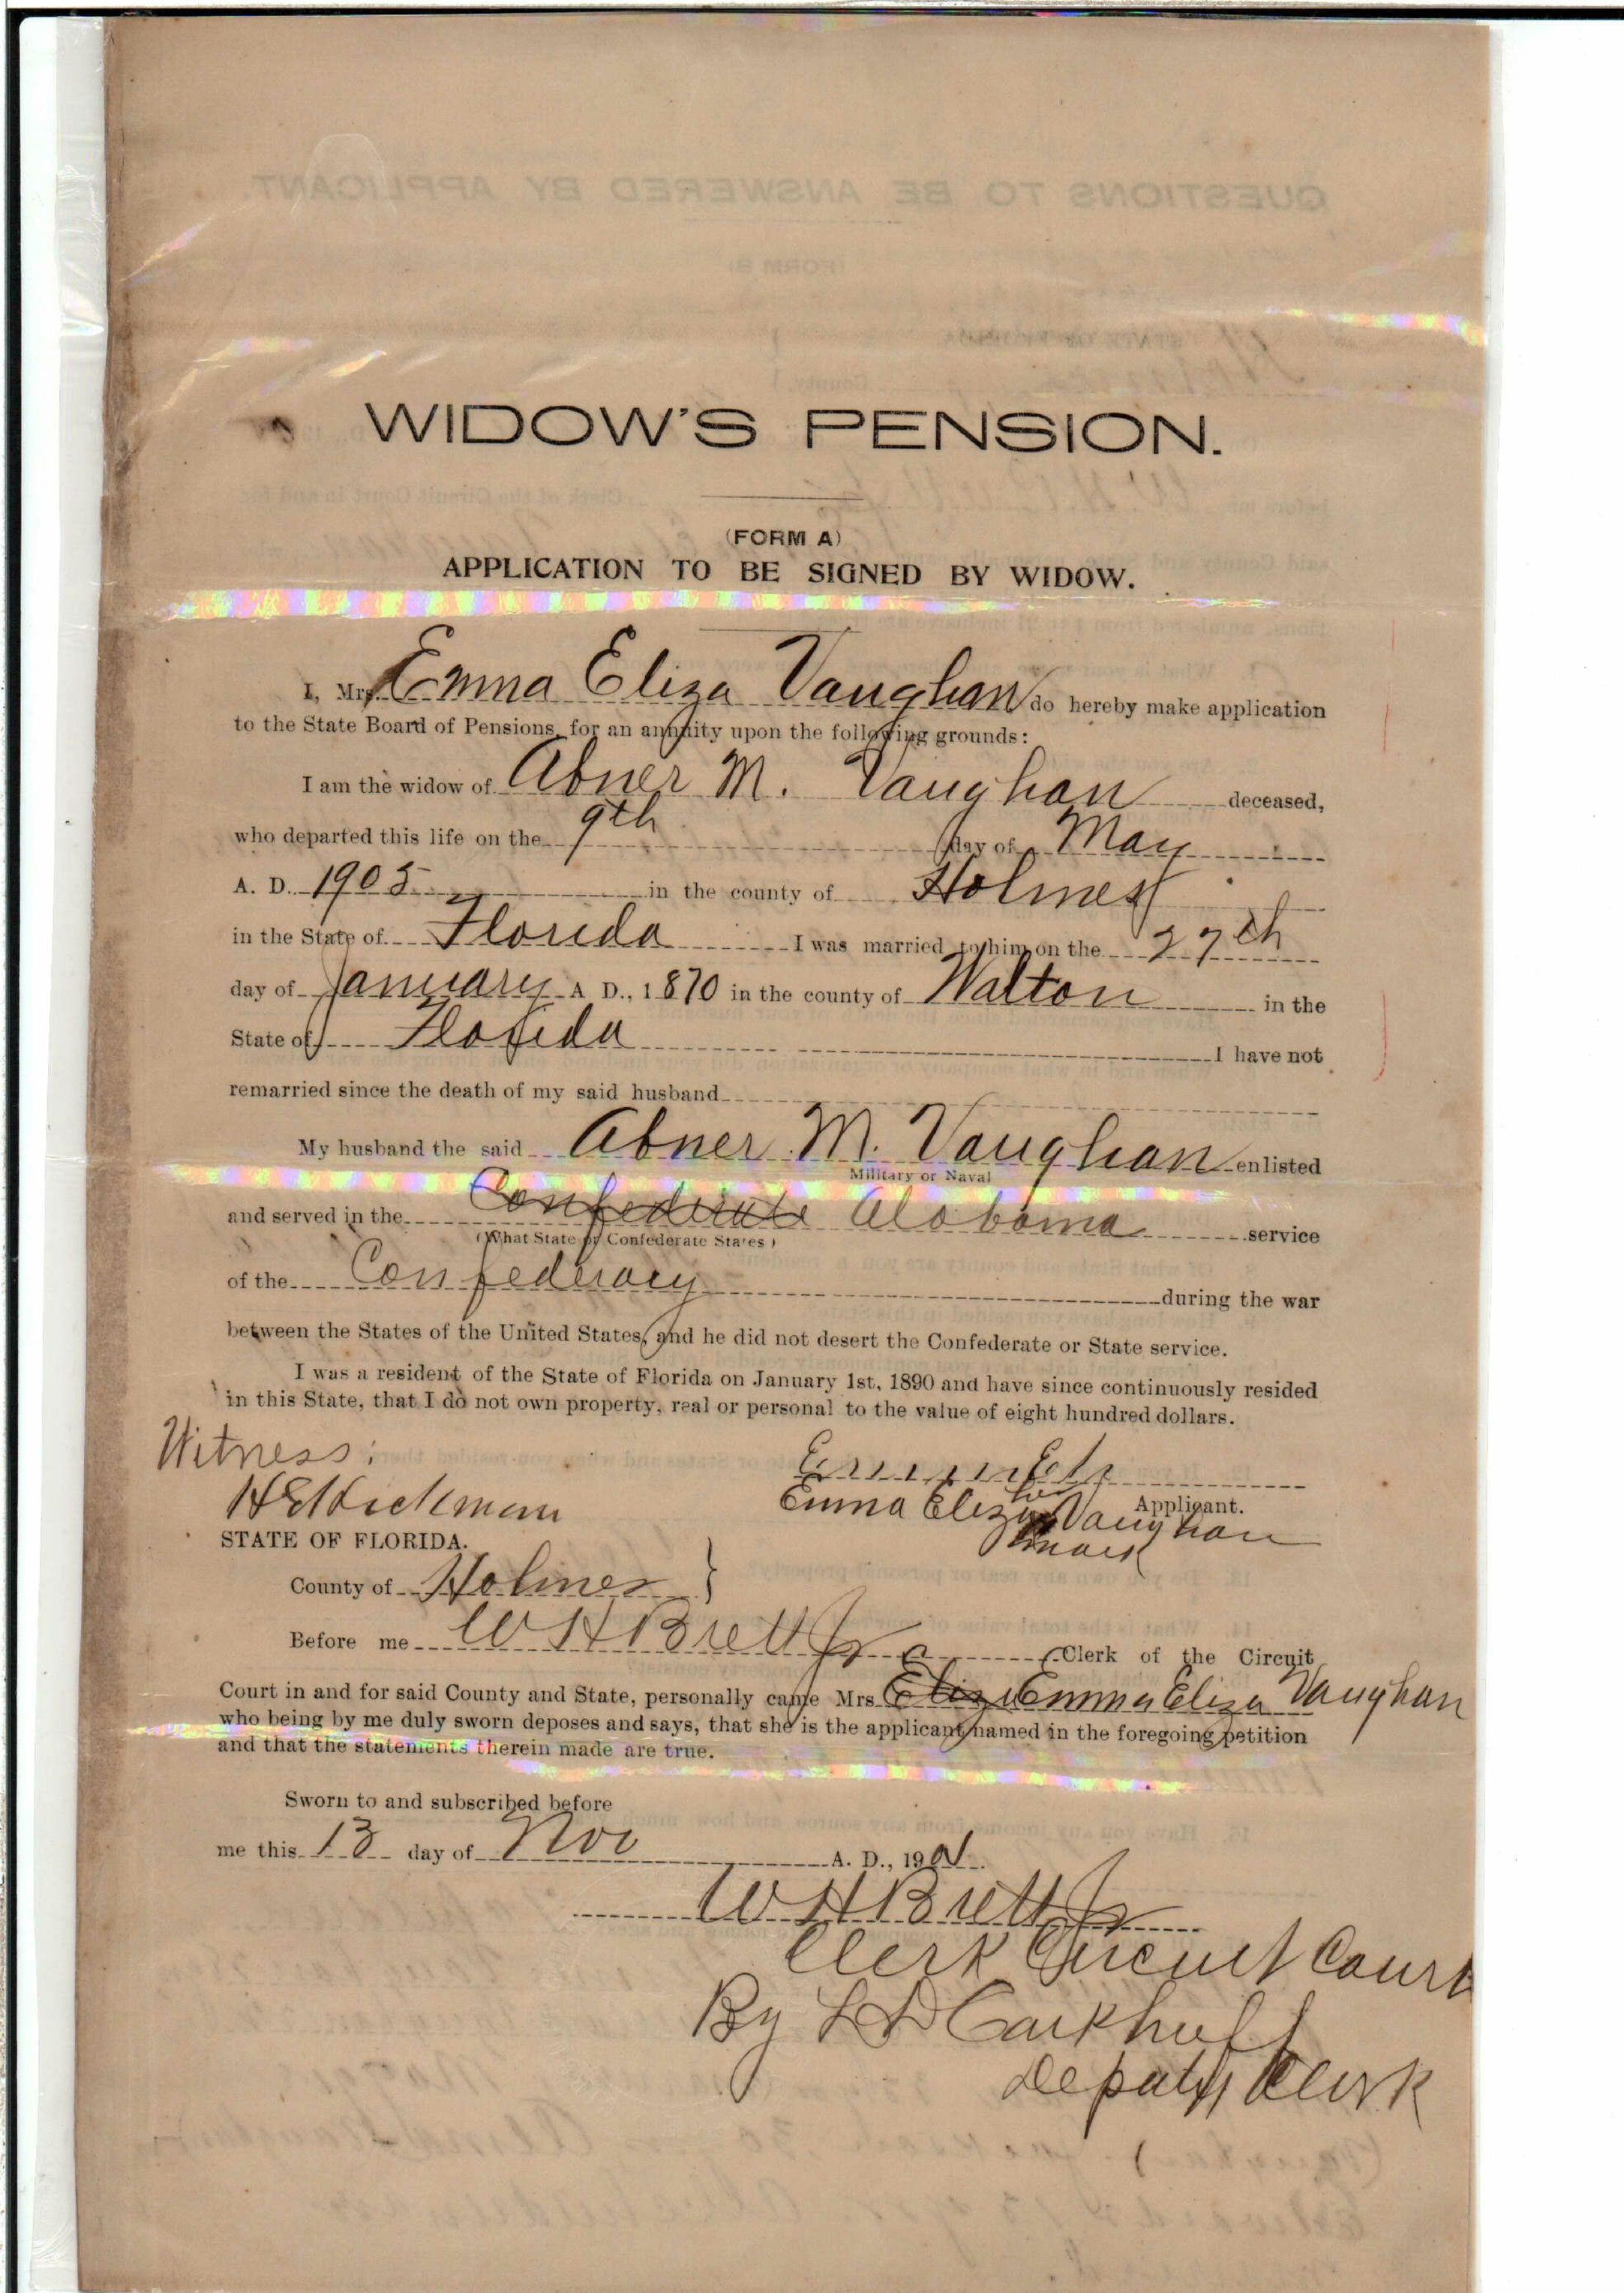 WIDOW'S PENSION.
(FORM A)
APPLICATION TO BE SIGNED BY WIDOW.
I, Mrs. Emma Eliza Vaughan do hereby make application
to the State Board of Pensions, for an annuity upon the following grounds:
I am the widow of Abner M. Vaughan deceased,
who departed this life on the 9th day of May
A. D. 1905 in the county of Holmes
in the State of Florida I was married to him on the 27th
day of January A D., 1870 in the county of Walton in the
State of Florida I have not
remarried since the death of my said husband
My husband the said Abner M. Vaughan enlisted
Military or Naval
and served in the Confederate Alabama service
(What State or Confederate States)
of the Confederacy during the war
between the States of the United States, and he did not desert the Confederate or State service.
I was a resident of the State of Florida on January 1st, 1890 and have since continuously resided
in this State, that I do not own property, real or personal to the value of eight hundred dollars.
Witness:
H E Hickman
Emma Eliza her Vaughan
Applicant.
mark
STATE OF FLORIDA.
County of Holmes }
Before me W H Brett Jr Clerk of the Circuit
Court in and for said County and State, personally came Mrs. Eliza Emma Eliza Vaughan
who being by me duly sworn deposes and says, that she is the applicant named in the foregoing petition
and that the statements therein made are true.
Sworn to and subscribed before
me this 13 day of Nov A. D., 190
W H Brett Jr
Clerk Circuit Court
By L D Carkhuff
Deputy Clerk